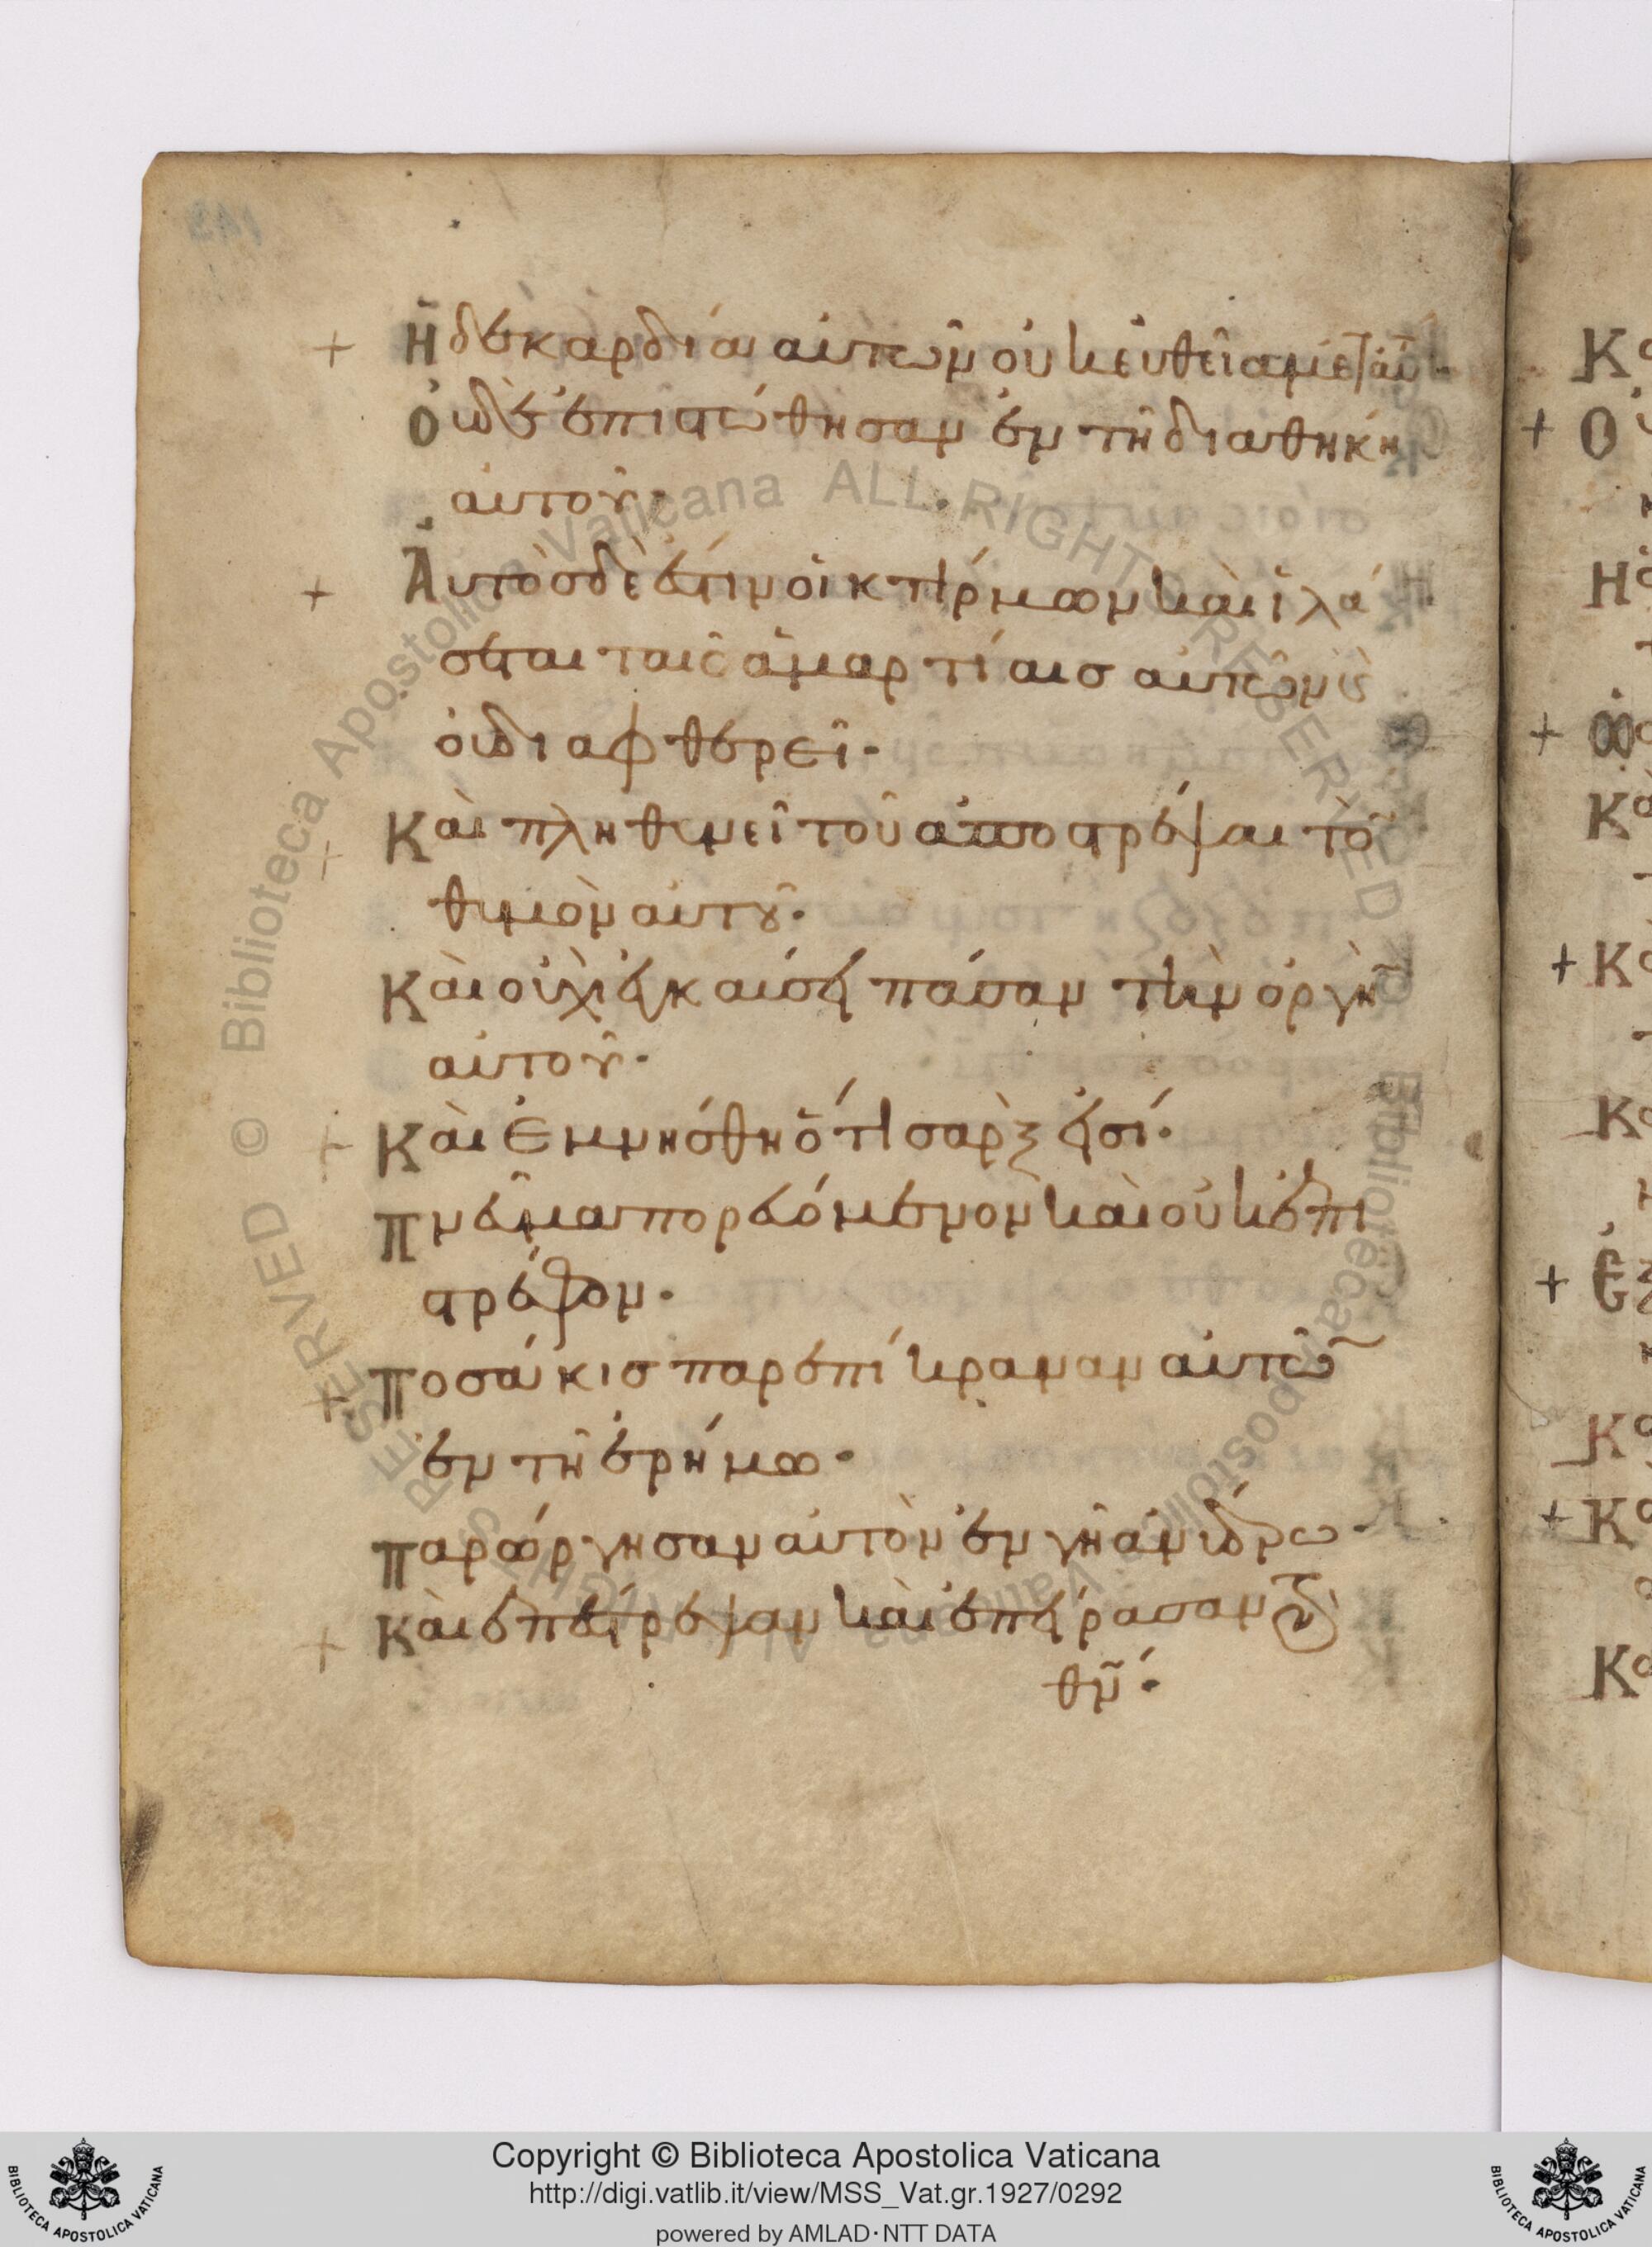 + Ἡ δὲ καρδία αὐτῶν οὐκ εὐθεῖα μετ αὐ
Οὐδὲ ἐπιστώθησαν ἐν τῆ διαθήκη
αὐτοῦ·
+ Αὐτὸσ δὲ ἐστιν οἰκτίρμων καὶ ἱλά
σεται ταῖς ἁμαρτίαισ αὐτῶν κς
οὐ διαφθερεῖ·
+ Καὶ πληθυνεῖ τοῦ ἀποστρέψαι τὸ
θυμὸν αὐτοῦ·
Καὶ οὐχὶ ἐκκαύσει πάσαν τὴν ὀργὴ
αὐτοῦ·
+ Καὶ ἐμνήσθη ὅτι σὰρξ εἰσί·
Πνεῦμα πορευόμενον καὶ οὐκ ἐπι
στρέφον·
+ Ποσάκισ παρεπίκραναν αὐτὸ
ἐν τῆ ἐρήμω·
Παρώργησαν αὐτὸν ἐν γῆ ἀνύδρω·
+ Καὶ ἐπέστρεψαν καὶ ἐπείρασαν τὸν
θν·
143
Κ
+ Ο
Η
+ Ω
Κ
+ Κ
Κ
+ Ἐξ
Κ
+ Κ
Κ
RESERVED © Biblioteca Apostolica Vaticana ALL RIGHTS RESERVED
Copyright © Biblioteca Apostolica Vaticana
http://digi.vatlib.it/view/MSS_Vat.gr.1927/0292
powered by AMLAD·NTT DATA
BIBLIOTECA APOSTOLICA VATICANA
BIBLIOTECA APOSTOLICA VATICANA